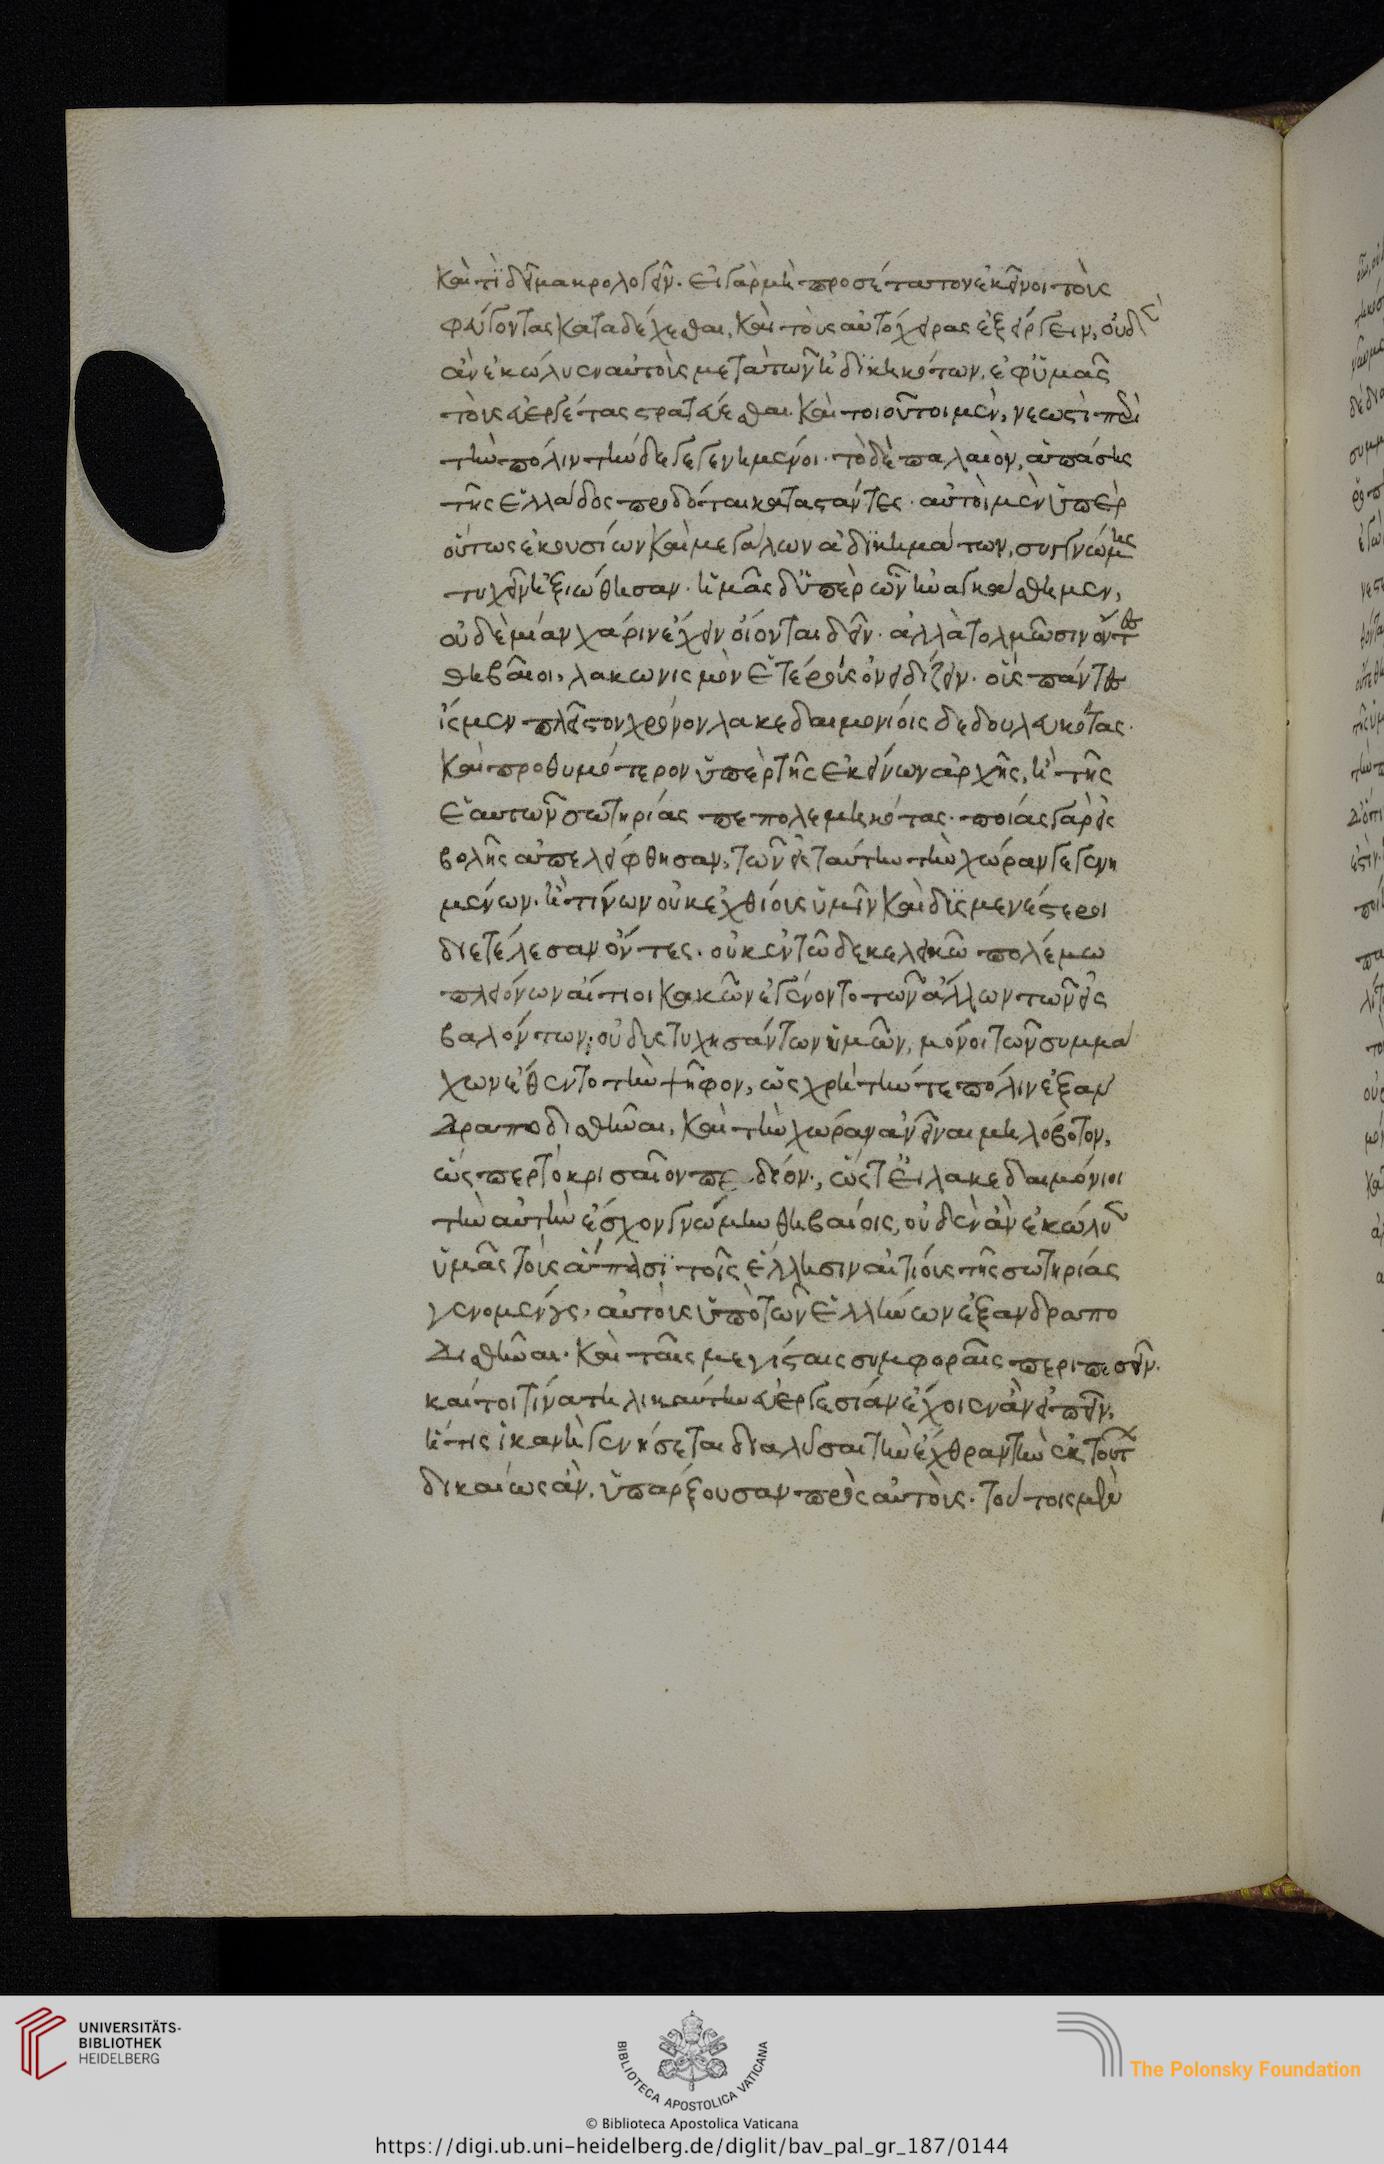 καὶ τί δεῖ μακρολογεῖν. εἰ γὰρ μὴ προσέταττον ἐκεῖνοι τοὺς
φεύγοντας καταδέχεσθαι, καὶ τοὺς αὐτόχειρας ἐξείργειν, οὐδὲν
ἂν ἐκώλυεν αὐτοὺς μετὰ τῶν ἠδικηκότων, ἐφ' ὑμᾶς
τοὺς εὐεργέτας στρατεύεσθαι. καὶ τοιοῦτοι μὲν, νεωστὶ περὶ
τὴν πόλιν τήνδε γεγενημένοι. τὸ δὲ παλαιὸν, ἁπάσης
τῆς ἑλλάδος προδόται καταστάντες. αὐτοὶ μὲν ὑπὲρ
οὕτως ἑκουσίων καὶ μεγάλων ἀδικημάτων, συγγνώμης
τυχεῖν ἠξιώθησαν. ἡμᾶς δ' ὑπὲρ ὧν ἠναγκάσθημεν,
οὐδὲ μίαν χάριν ἔχειν οἴονται δεῖν. ἀλλὰ τολμῶσιν ὄντες
θηβαῖοι, λακωνισμὸν ἑτέροις ὀνειδίζειν. οὓς πάντες
ἴσμεν πλεῖστον χρόνον λακεδαιμονίοις δεδουλευκότας.
καὶ προθυμότερον ὑπὲρ τῆς ἐκείνων ἀρχῆς, ἢ τῆς
ἑαυτῶν σωτηρίας πεπολεμηκότας. ποίας γὰρ εἰς
βολῆς ἀπελείφθησαν, τῶν εἰς ταύτην τὴν χώραν γεγενη
μένων. ἢ τίνων οὐκ ἐχθίους ὑμῖν καὶ δυσμενέστεροι
διετέλεσαν ὄντες. οὐκ ἐν τῶ δεκελεικῶ πολέμω
πλειόνων αἴτιοι κακῶν ἐγένοντο τῶν ἄλλων τῶν εἰς
βαλόντων; οὐ δυστυχησάντων ὑμῶν, μόνοι τῶν συμμά
χων ἔθεντο τὴν ψῆφον, ὡς χρὴ τήν τε πόλιν ἐξαν
δραποδισθῆναι, καὶ τὴν χώραν ἀνεῖναι μηλόβοτον,
ὥσπερ τὸ κρισαῖον πεδίον., ὥστ' εἰ λακεδαιμόνιοι
τὴν αὐτὴν ἔσχον γνώμην θηβαίοις, οὐδὲν ἂν ἐκώλυεν
ὑμᾶς τοὺς ἅπασι τοῖς ἕλλησιν αἰτίους τῆς σωτηρίας
γενομένους, αὐτοὺς ὑπὸ τῶν ἑλλήνων ἐξανδραπο
δισθῆναι. καὶ ταῖς μεγίσταις συμφοραῖς περιπεσεῖν.
καίτοι τίνα τηλικαύτην εὐεργεσίαν ἔχοιεν ἂν εἰπεῖν,
ἥτις ἱκανὴ γενήσεται διαλῦσαι τὴν ἔχθραν τὴν ἐκ τούτων
δικαίως ἂν, ὑπάρξουσαν πρὸς αὐτοὺς. τούτοις μὲν
UNIVERSITÄTS-
BIBLIOTHEK
HEIDELBERG
BIBLIOTECA APOSTOLICA VATICANA
The Polonsky Foundation
© Biblioteca Apostolica Vaticana
https://digi.ub.uni-heidelberg.de/diglit/bav_pal_gr_187/0144